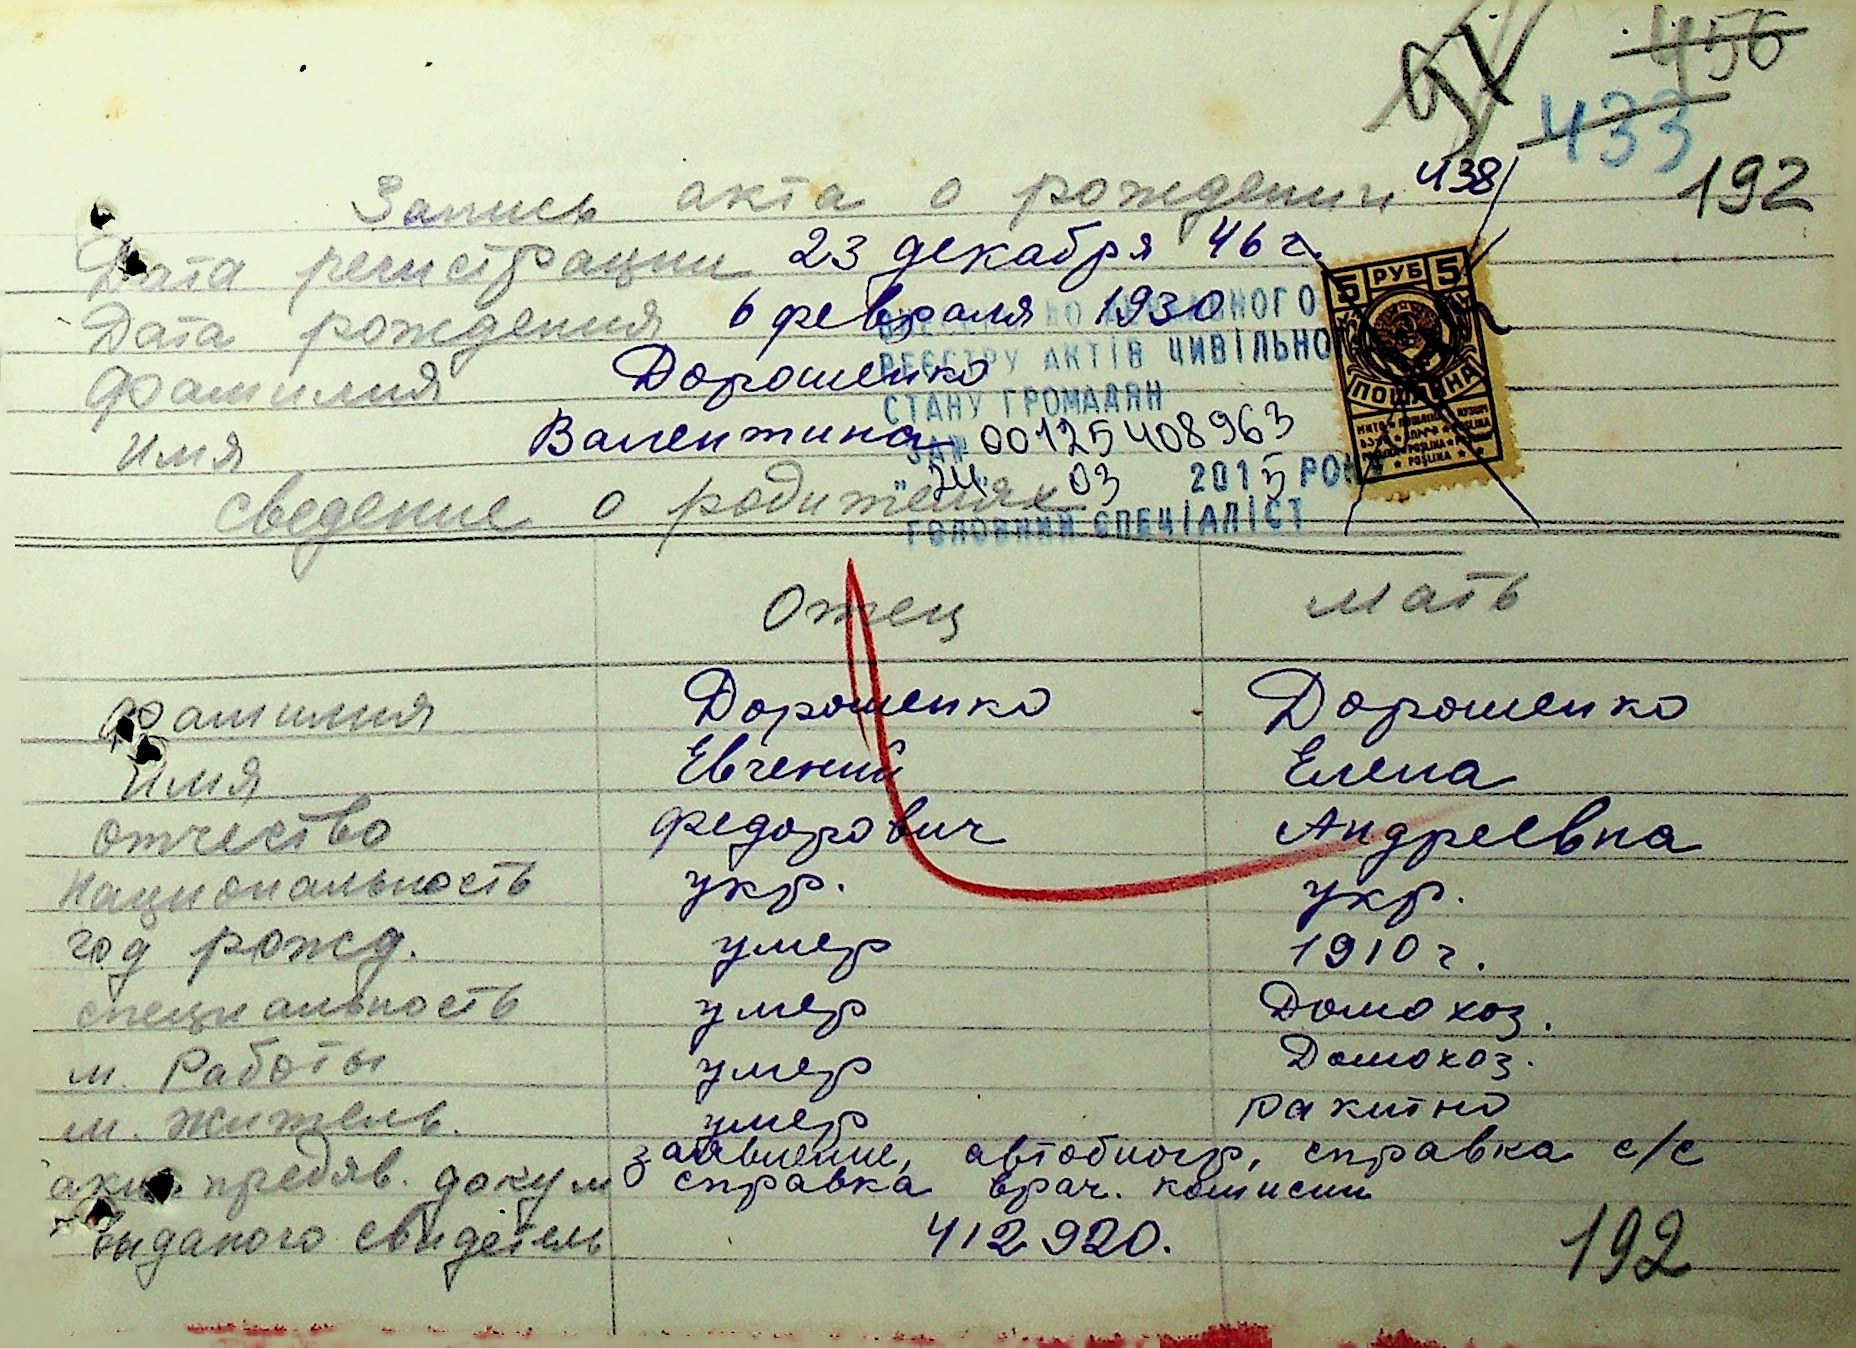 456
433
91
192
Запись акта о рождении 438
Дата регистрации 23 декабря 46 г.
Дата рождения 6 февраля 1930
фамилия Дорошенко
имя Валентина
сведение о родителях
РЕЄСТРУ АКТІВ ЦИВІЛЬНО
СТАНУ ГРОМАДЯН
ЗА № 00125408963
"24" 03 2015 РОКУ
ГОЛОВНИЙ СПЕЦІАЛІСТ
5 РУБ 5
ПОШЛИНА
POŞLINA
Отец мать
фамилия Дорошенко Дорошенко
Имя Евгений Елена
отчество Федорович Андреевна
национальность укр. укр.
год рожд. умер 1910 г.
специальность умер Домохоз.
м. Работы умер Домохоз.
м. жительв. умер Ракитно
предяв. докум заявление, автобиогр, справка с/с
справка врач. комисии
выданого свидетель 412920.
192